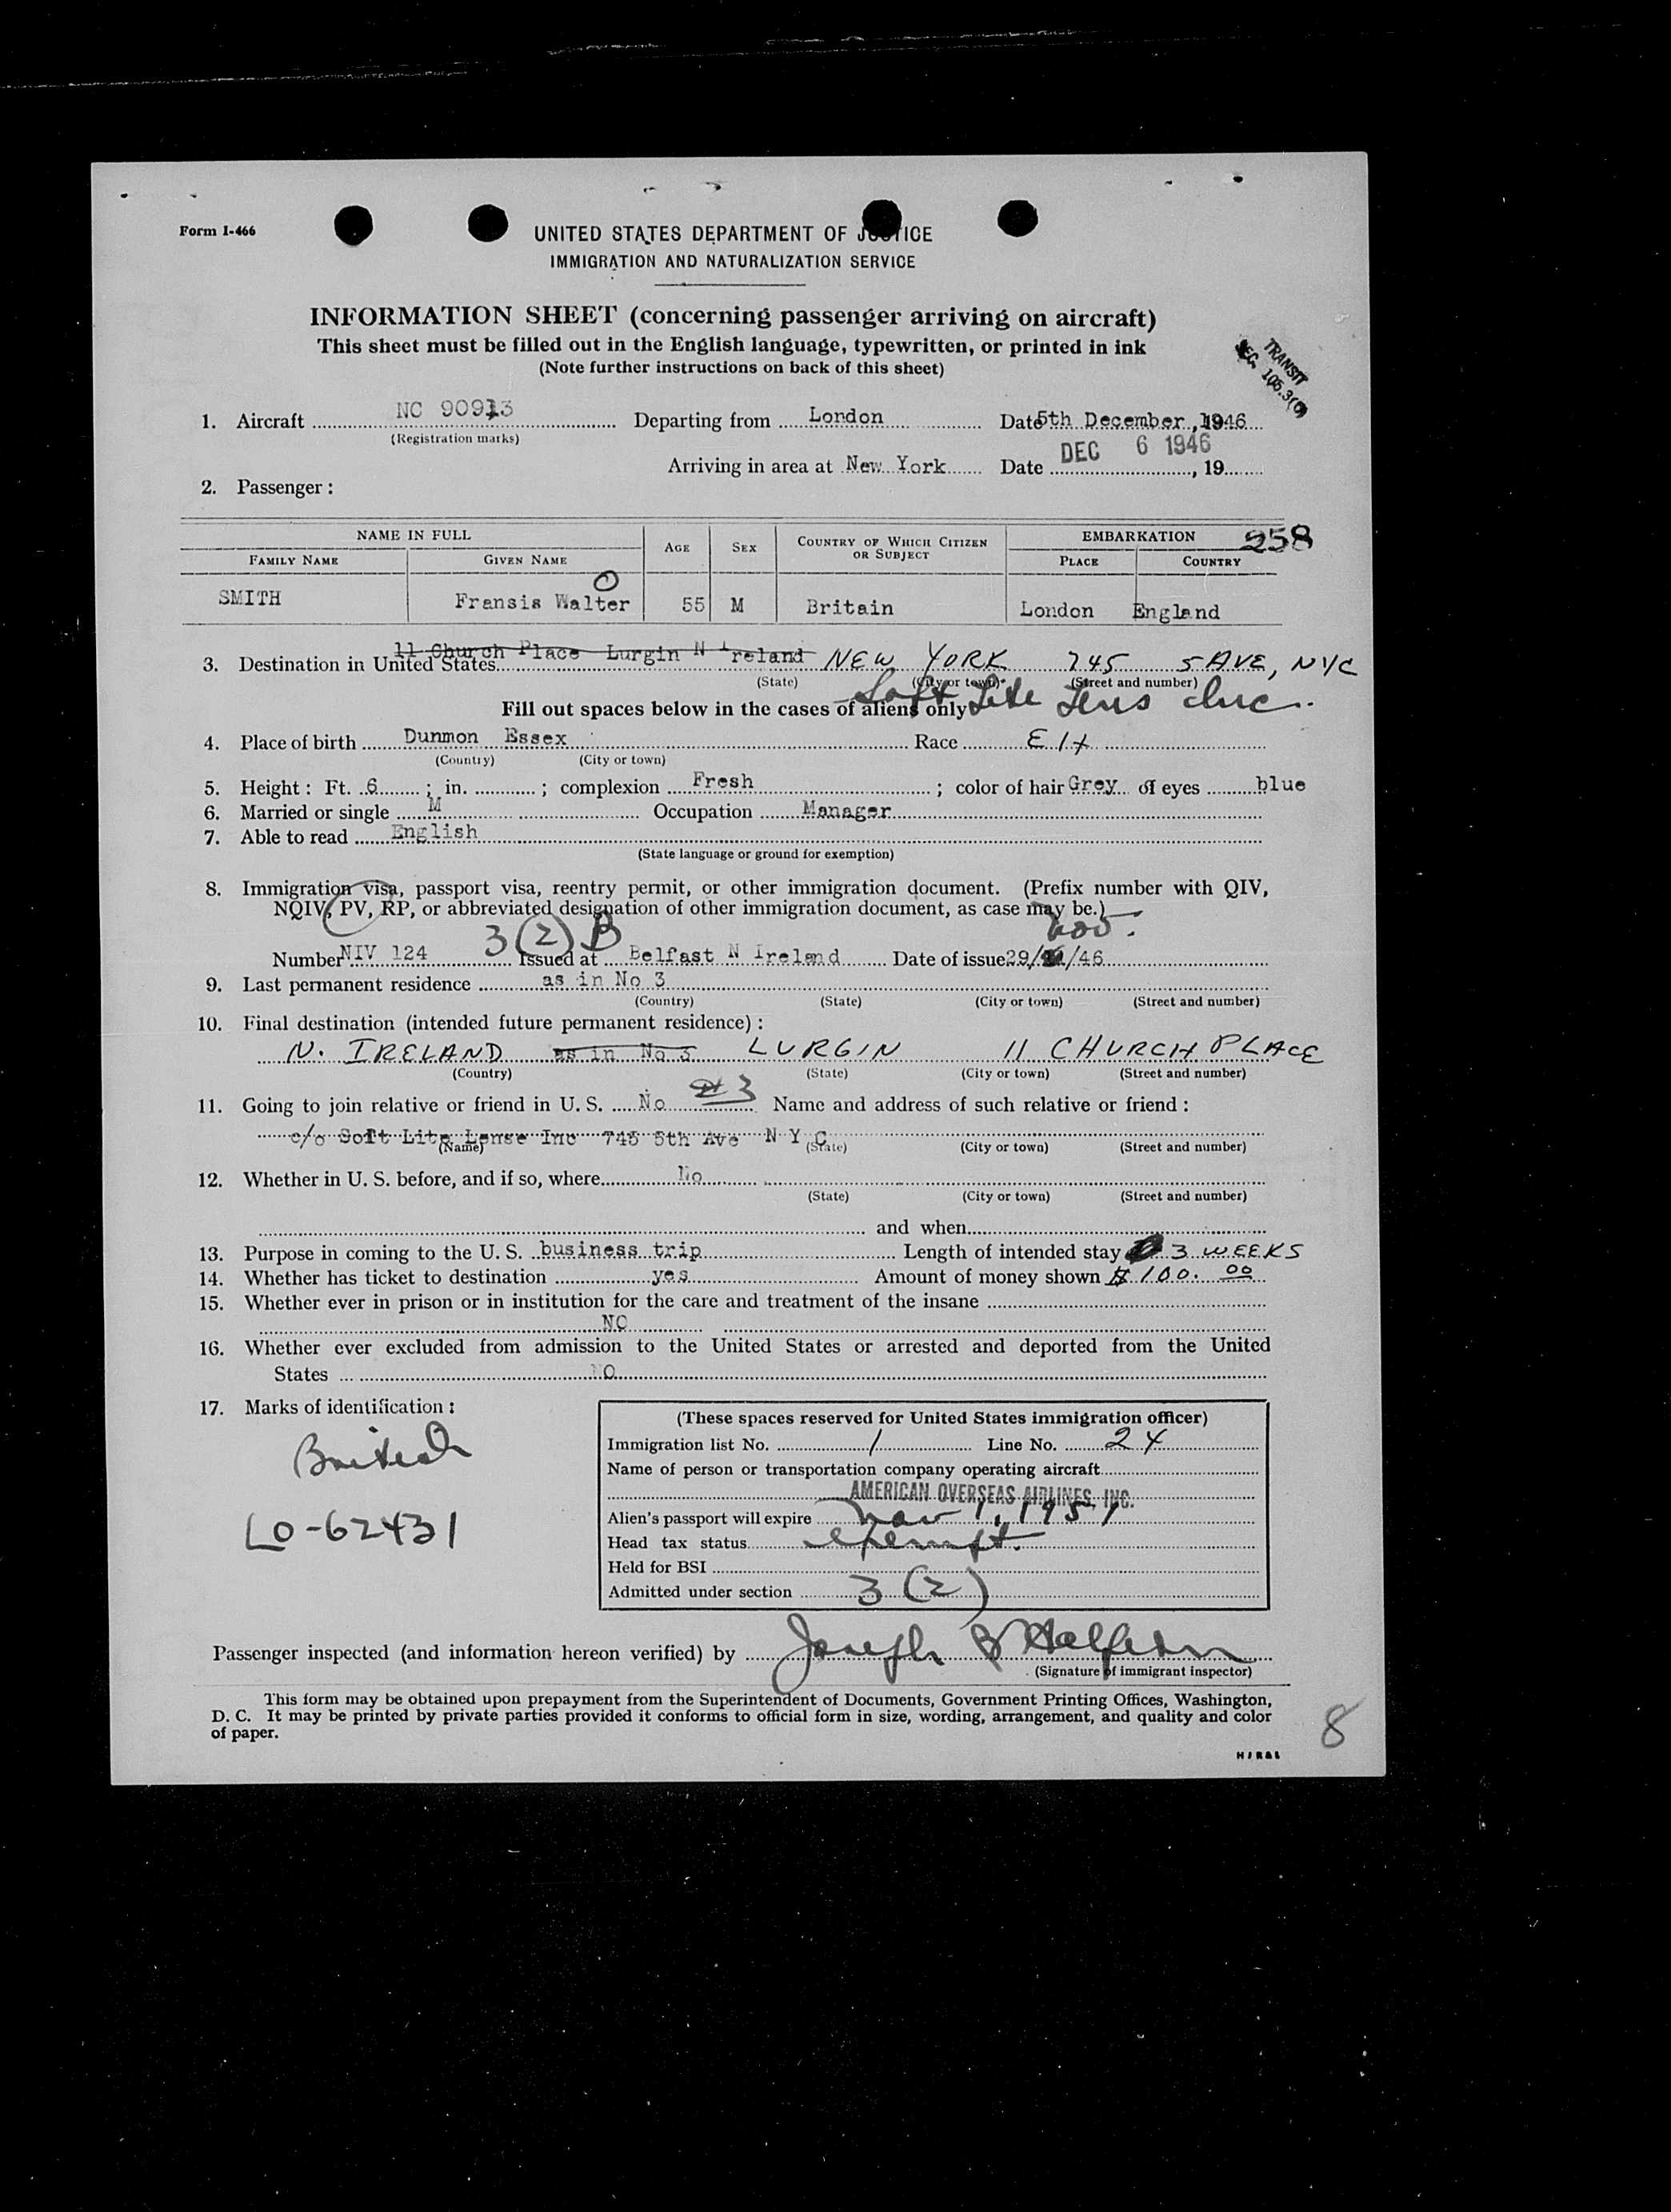 Form I-466
UNITED STATES DEPARTMENT OF JUSTICE
IMMIGRATION AND NATURALIZATION SERVICE
INFORMATION SHEET (concerning passenger arriving on aircraft)
This sheet must be filled out in the English language, typewritten, or printed in ink
(Note further instructions on back of this sheet)
TRANSIT
SEC. 105.3(C)
1. Aircraft NC 90913 Departing from London Date 5th December, 1946
(Registration marks)
DEC 6 1946
Arriving in area at New York Date , 19
2. Passenger:
NAME IN FULL AGE SEX COUNTRY OF WHICH CITIZEN OR SUBJECT EMBARKATION 258
FAMILY NAME GIVEN NAME PLACE COUNTRY
SMITH Fransis Walter 55 M Britain London England
11 Church Place Lurgin N Ireland
3. Destination in United States NEW YORK 745 5 AVE, NYC
(State) (City or town) (Street and number)
Soft Lite Lens Inc.
Fill out spaces below in the cases of aliens only
4. Place of birth Dunmon Essex Race
(Country) (City or town)
5. Height: Ft. 6 ; in. ; complexion Fresh ; color of hair Grey of eyes blue
6. Married or single M Occupation Manager
7. Able to read English
(State language or ground for exemption)
8. Immigration visa, passport visa, reentry permit, or other immigration document. (Prefix number with QIV,
NQIV, PV, RP, or abbreviated designation of other immigration document, as case may be.)
3(2) B Nov.
Number NIV 124 Issued at Belfast N Ireland Date of issue 29/ /46
9. Last permanent residence as in No 3
(Country) (State) (City or town) (Street and number)
10. Final destination (intended future permanent residence):
N. IRELAND as in No 3 LURGIN 11 CHURCH PLACE
(Country) (State) (City or town) (Street and number)
11. Going to join relative or friend in U. S. No # 3 Name and address of such relative or friend:
c/o Soft Lite Lense Inc 745 5th Ave N Y C
(Name) (State) (City or town) (Street and number)
12. Whether in U. S. before, and if so, where No
(State) (City or town) (Street and number)
and when
13. Purpose in coming to the U. S. business trip Length of intended stay 3 WEEKS
14. Whether has ticket to destination yes Amount of money shown $ 100.00
15. Whether ever in prison or in institution for the care and treatment of the insane
NO
16. Whether ever excluded from admission to the United States or arrested and deported from the United
States NO
17. Marks of identification:
British
LO-62431
(These spaces reserved for United States immigration officer)
Immigration list No. 1 Line No. 24
Name of person or transportation company operating aircraft
AMERICAN OVERSEAS AIRLINES, INC.
Alien's passport will expire Nov 1, 1951
Head tax status exempt.
Held for BSI
Admitted under section 3(2)
Passenger inspected (and information hereon verified) by Joseph B Halpern
(Signature of immigrant inspector)
This form may be obtained upon prepayment from the Superintendent of Documents, Government Printing Offices, Washington,
D. C. It may be printed by private parties provided it conforms to official form in size, wording, arrangement, and quality and color
of paper.
8